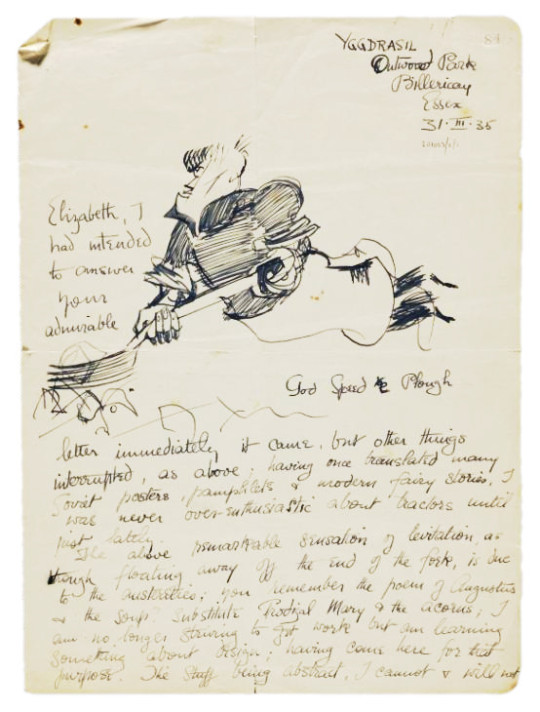 84
YGGDRASIL
Outwood Park
Billericay
Essex
31·III·35
Elizabeth, I
had intended
to answer
your
admirable
God Speed Plough
letter immediately it came, but other things
interrupted, as above; having once translated many
Soviet posters, pamphlets & modern fairy stories, I
was never over-enthusiastic about tractors until
just lately.
The above remarkable sensation of levitation, as
though floating away off the end of the fork, is due
to the austerities; you remember the poem of Augustus
& the soup. Substitute Prodigal Mary & the acorns; I
am no longer striving to get work but am learning
something about design; having come here for that
purpose. The stuff being abstract, I cannot & will not